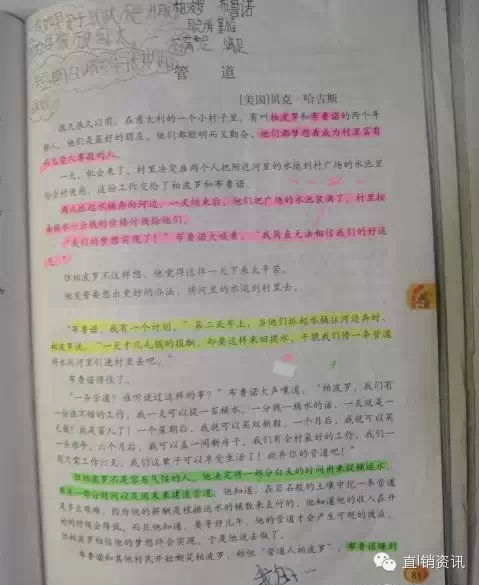 柏波罗 布鲁诺
管 道
[美国]贝克·哈吉斯
很久很久以前，在意大利的一个小村子里，有叫柏波罗和布鲁诺的两个年
轻人。他们是最好的朋友，他们都聪明而又勤奋。他们都梦想着成为村里富有
而又受人尊敬的人。
一天，机会来了。村里决定雇两个人把附近河里的水运到村广场的水池里
供全村使用。这份工作交给了柏波罗和布鲁诺。
两人抓起水桶奔向河边。一天结束后，他们把广场的水池装满了。村里按
每桶水一分钱的价格付钱给他们。
“我们的梦想实现了！”布鲁诺大喊着，“我简直无法相信我们的好运
气。”
但柏波罗不这样想，他觉得这样一天下来太辛苦。
他发誓要想出更好的办法，将河里的水运到村里去。
“布鲁诺，我有一个计划。”第二天早上，当他们抓起水桶往河边奔时，
柏波罗说，“一天才几毛钱的报酬，却要这样来回提水，干脆我们修一条管道
将水从河里引进村里去吧。”
布鲁诺愣住了。
“一条管道？谁听说过这样的事？”布鲁诺大声嚷道，“柏波罗，我们有
一份很不错的工作。我一天可以提一百桶水，一分钱一桶水的话，一天就是一
元钱！我是富人了！一个星期后，我就可以买双新鞋。一个月后，我就可以买
一头母牛。六个月后，我可以盖一间新房子。我们有全村最好的工作。我们一
周只需工作六天。我们这辈子可以享受生活了！放弃你的管道吧！”
但柏波罗不是容易气馁的人。他决定将一部分白天的时间用来提桶运水，
用另一部分时间以及周末来建造管道。他知道，在岩石般的土壤中挖一条管道
是多么艰难。因为他的薪酬是根据运水的桶数来支付的，他知道他的收入在开
始的时候会降低。而且他知道，要等好几年，他的管道才会产生可观的效益。
但柏波罗相信他的梦想终会实现，于是他就去做了。
布鲁诺和其他村民开始嘲笑柏波罗，称他“管道人柏波罗”。布鲁诺赚到
81
直销资讯